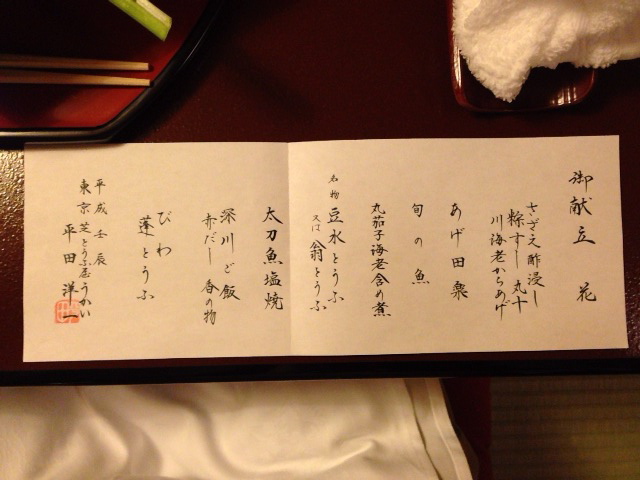 御献立　花
さざえ酢浸し
粽すし　丸十
川海老からあげ
あげ田楽
旬の魚
丸茄子海老含め煮
名物 豆水とうふ
又は 翁とうふ
太刀魚塩焼
深川ご飯
赤だし　香の物
びわ
蓬とうふ
平成壬辰
東京芝とうふ屋うかい
平田洋一